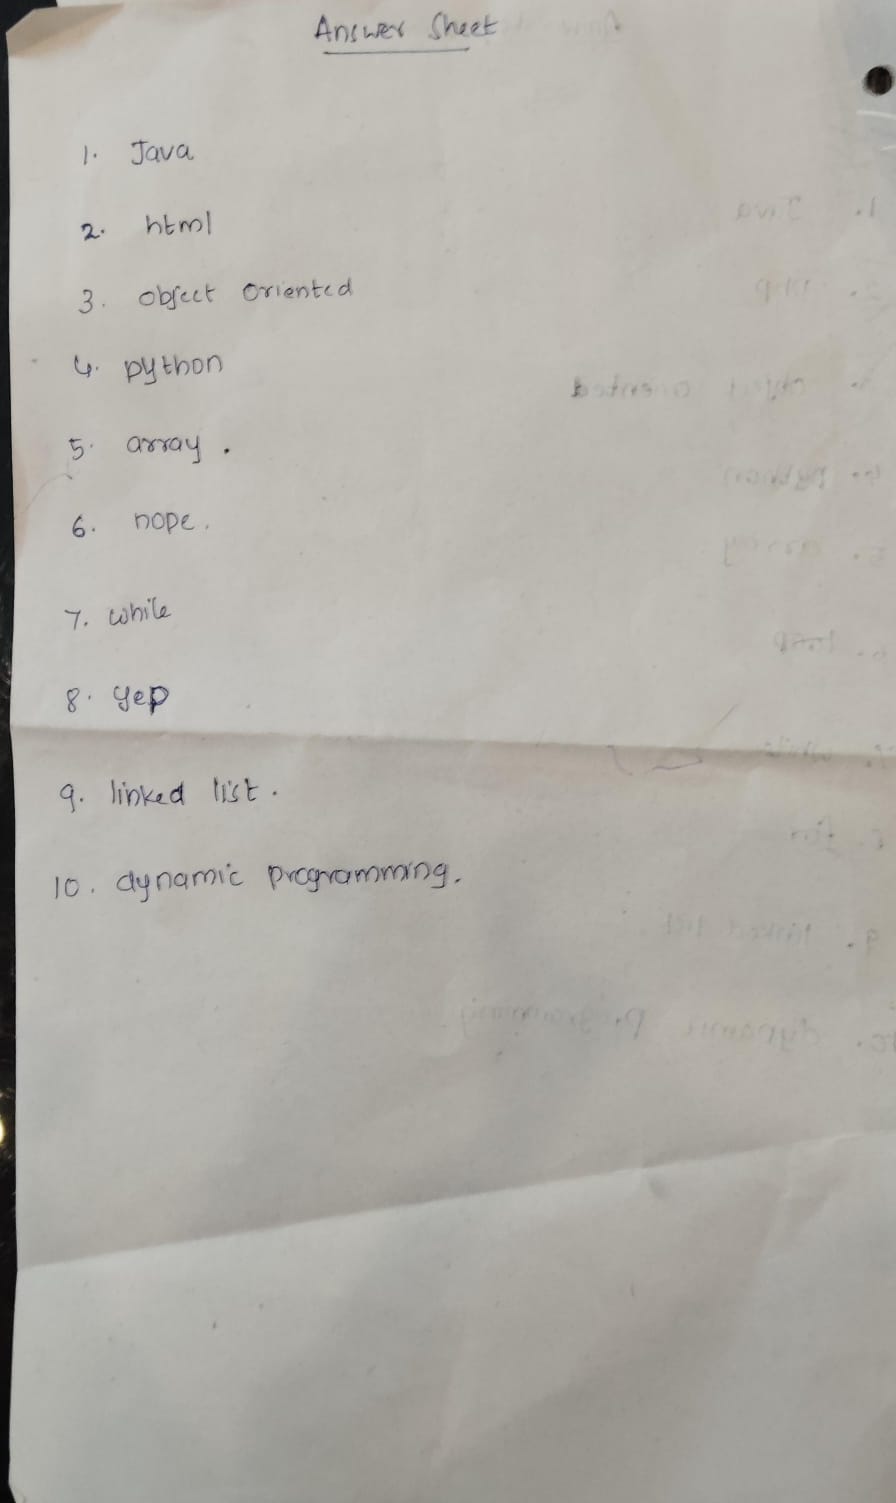 Answer Sheet
1. Java
2. html
3. object oriented
4. python
5. array.
6. nope.
7. while
8. yep
9. linked list.
10. dynamic programming.